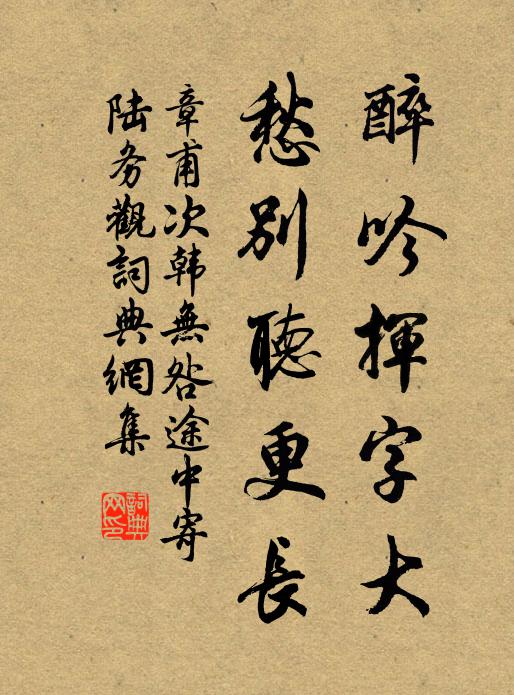 醉吟揮字大
愁別聽更長
章甫次韓無咎途中寄
陆务觀詞典網集
詞典
网印